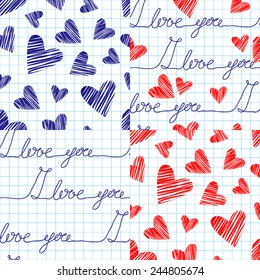 I love you
I
love you
I
I love you
I
love you
I love you
I
love you
www.shutterstock.com · 244805674